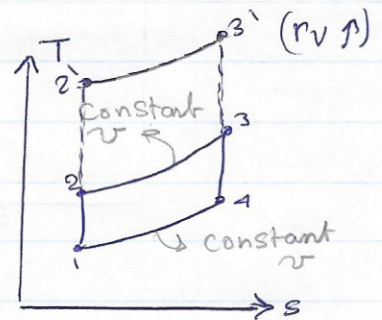 T
3' (rv ↑)
2'
constant
v
3
2
4
1
constant
v
s